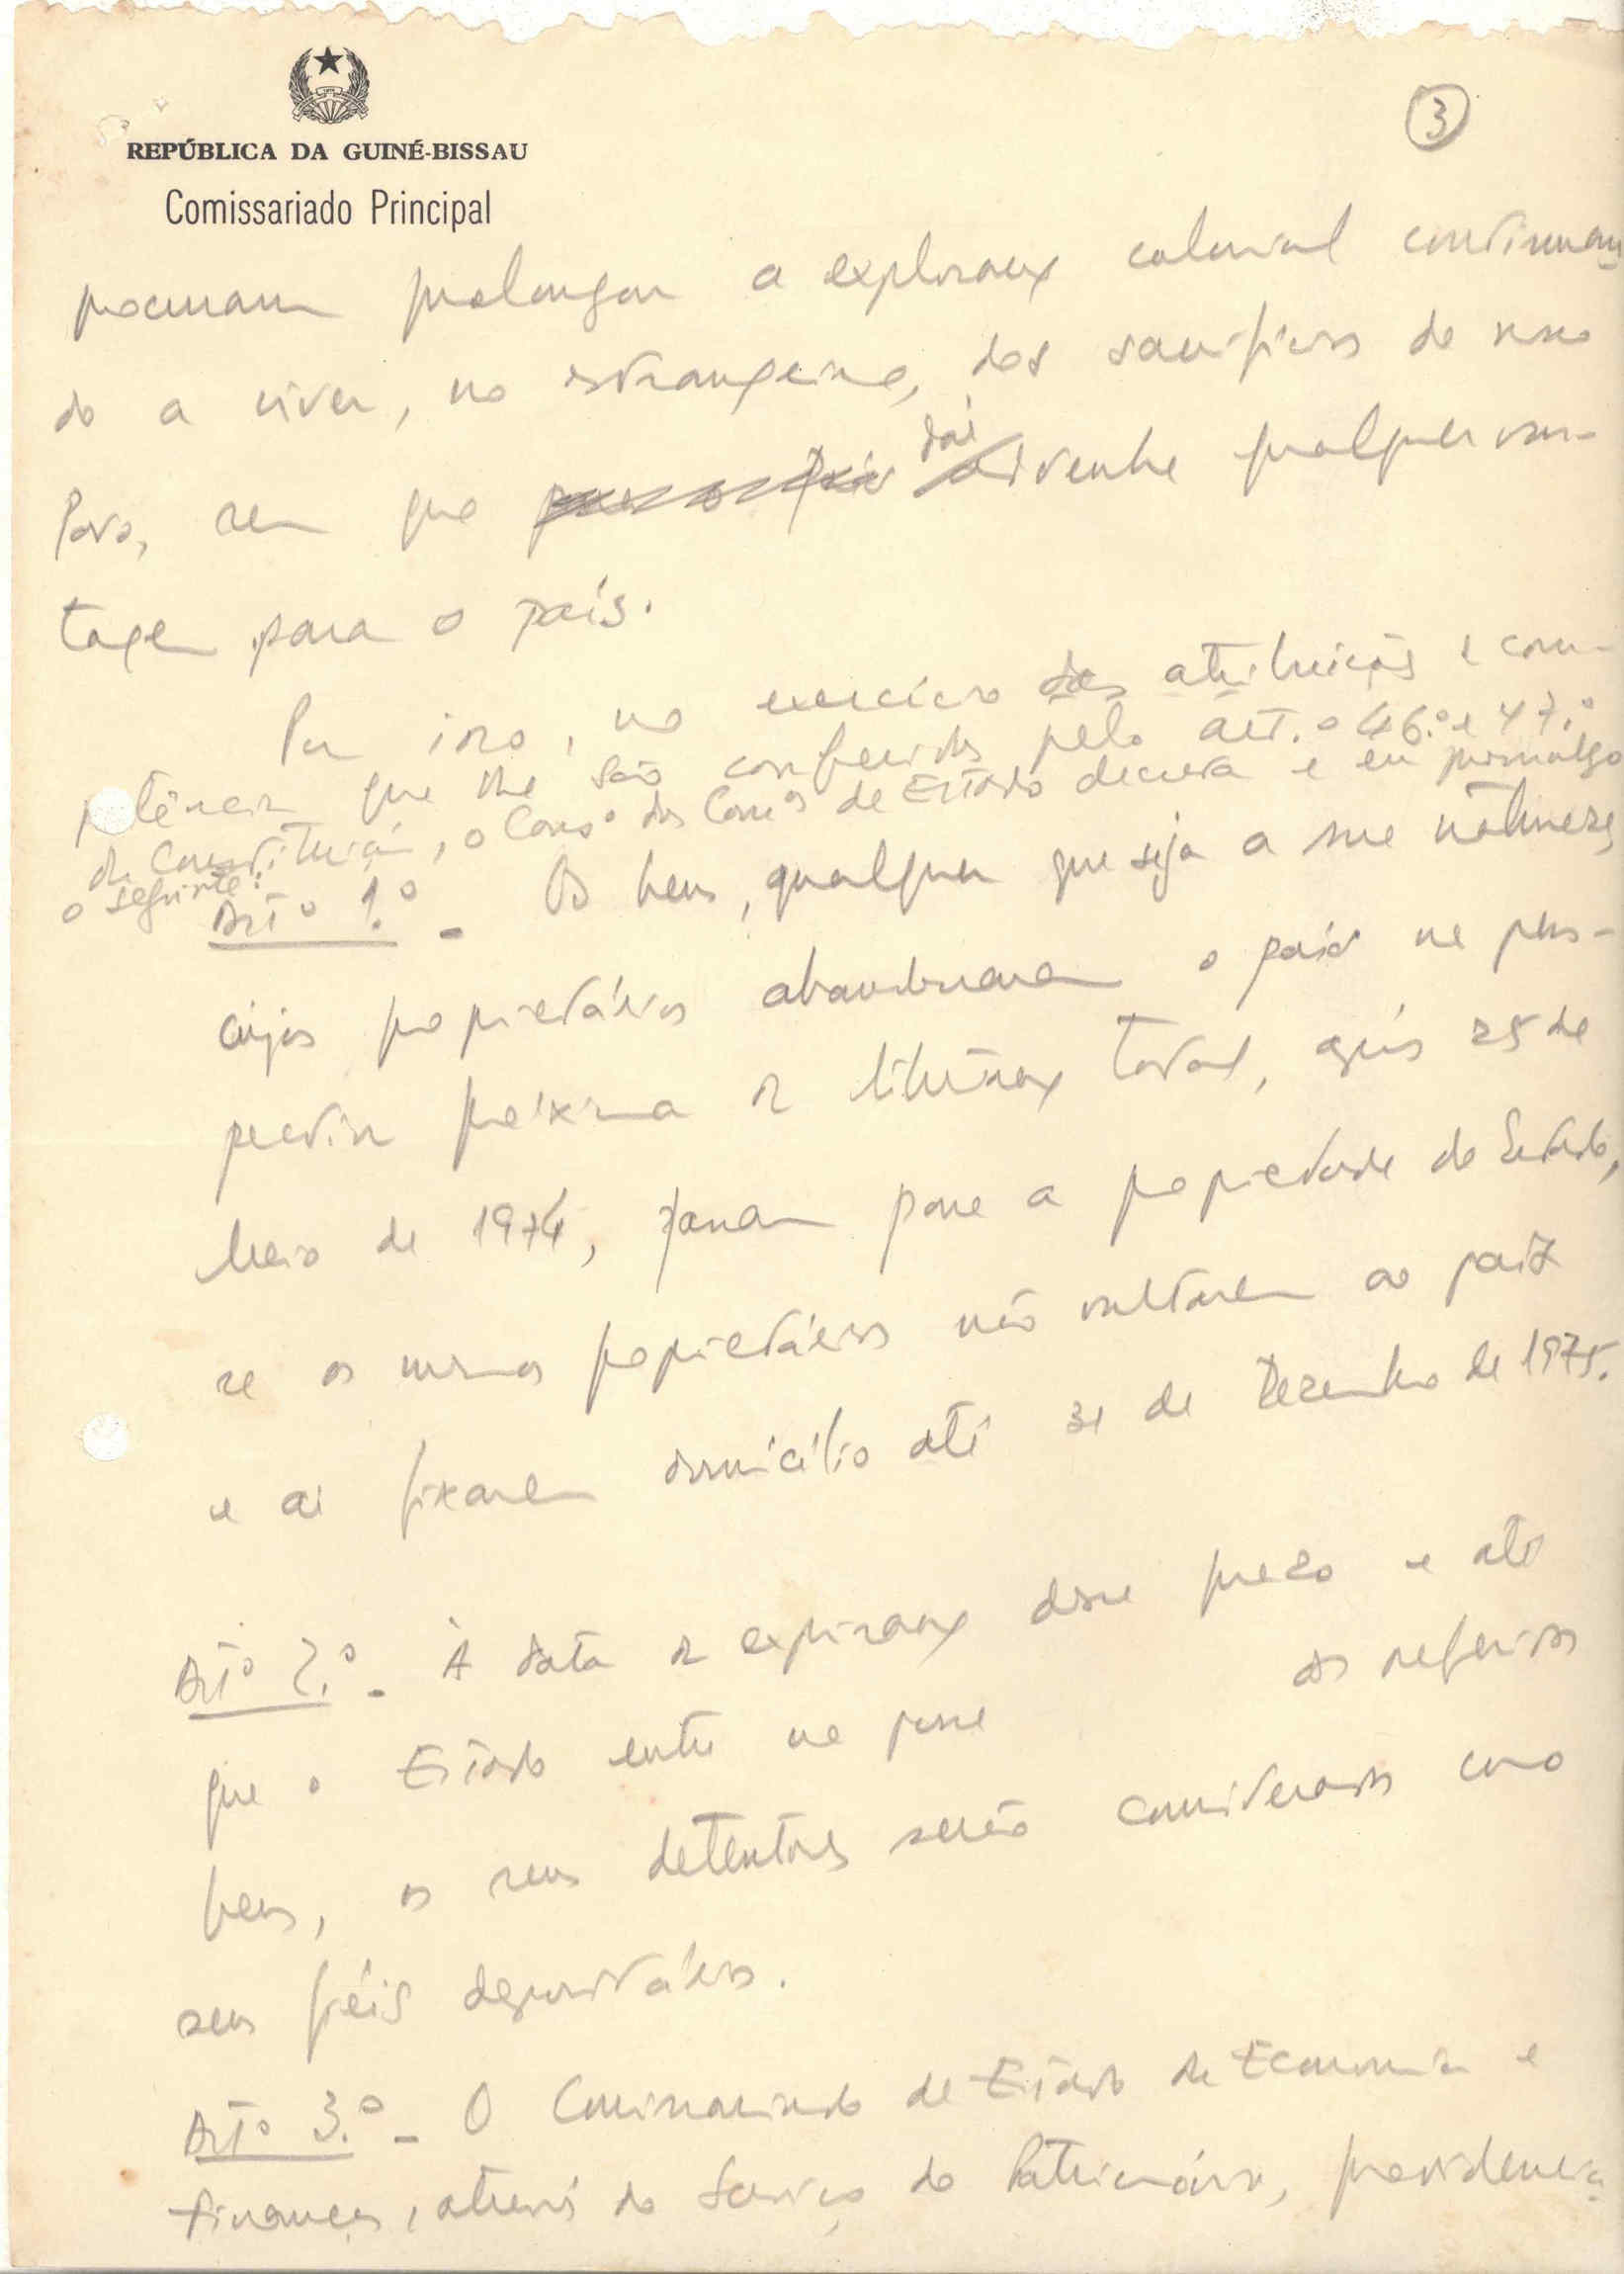 3
REPÚBLICA DA GUINÉ-BISSAU
Comissariado Principal
procuram prolongar a exploração colonial continuan
do a viver, no estrangeiro, dos sacrifícios do nosso
Povo, sem que daí advenha qualquer van-
tagem para o país.
Por isso, no exercício das atribuições e com-
petência que lhe são conferidas pelo art.º 46.º e 47.º
da Constituição, o Cons.º dos Com.os de Estado decreta e eu promulgo
o seguinte:
Artº 1.º - Os bens, qualquer que seja a sua natureza,
cujos proprietários abandonaram o país na pers-
pectiva próxima da libertação total, após 25 de
Maio de 1974, passam para a propriedade do Estado,
se os mesmos proprietários não voltarem ao país
e aí fixarem domicílio até 31 de Dezembro de 1975.
Artº 2.º - À data da expiração desse prazo e até
que o Estado entre na posse os referidos
bens, os seus detentores serão considerados como
seus fiéis depositários.
Artº 3.º - O Comissariado de Estado da Economia e
Finanças, através do Serviço do Património, providencia